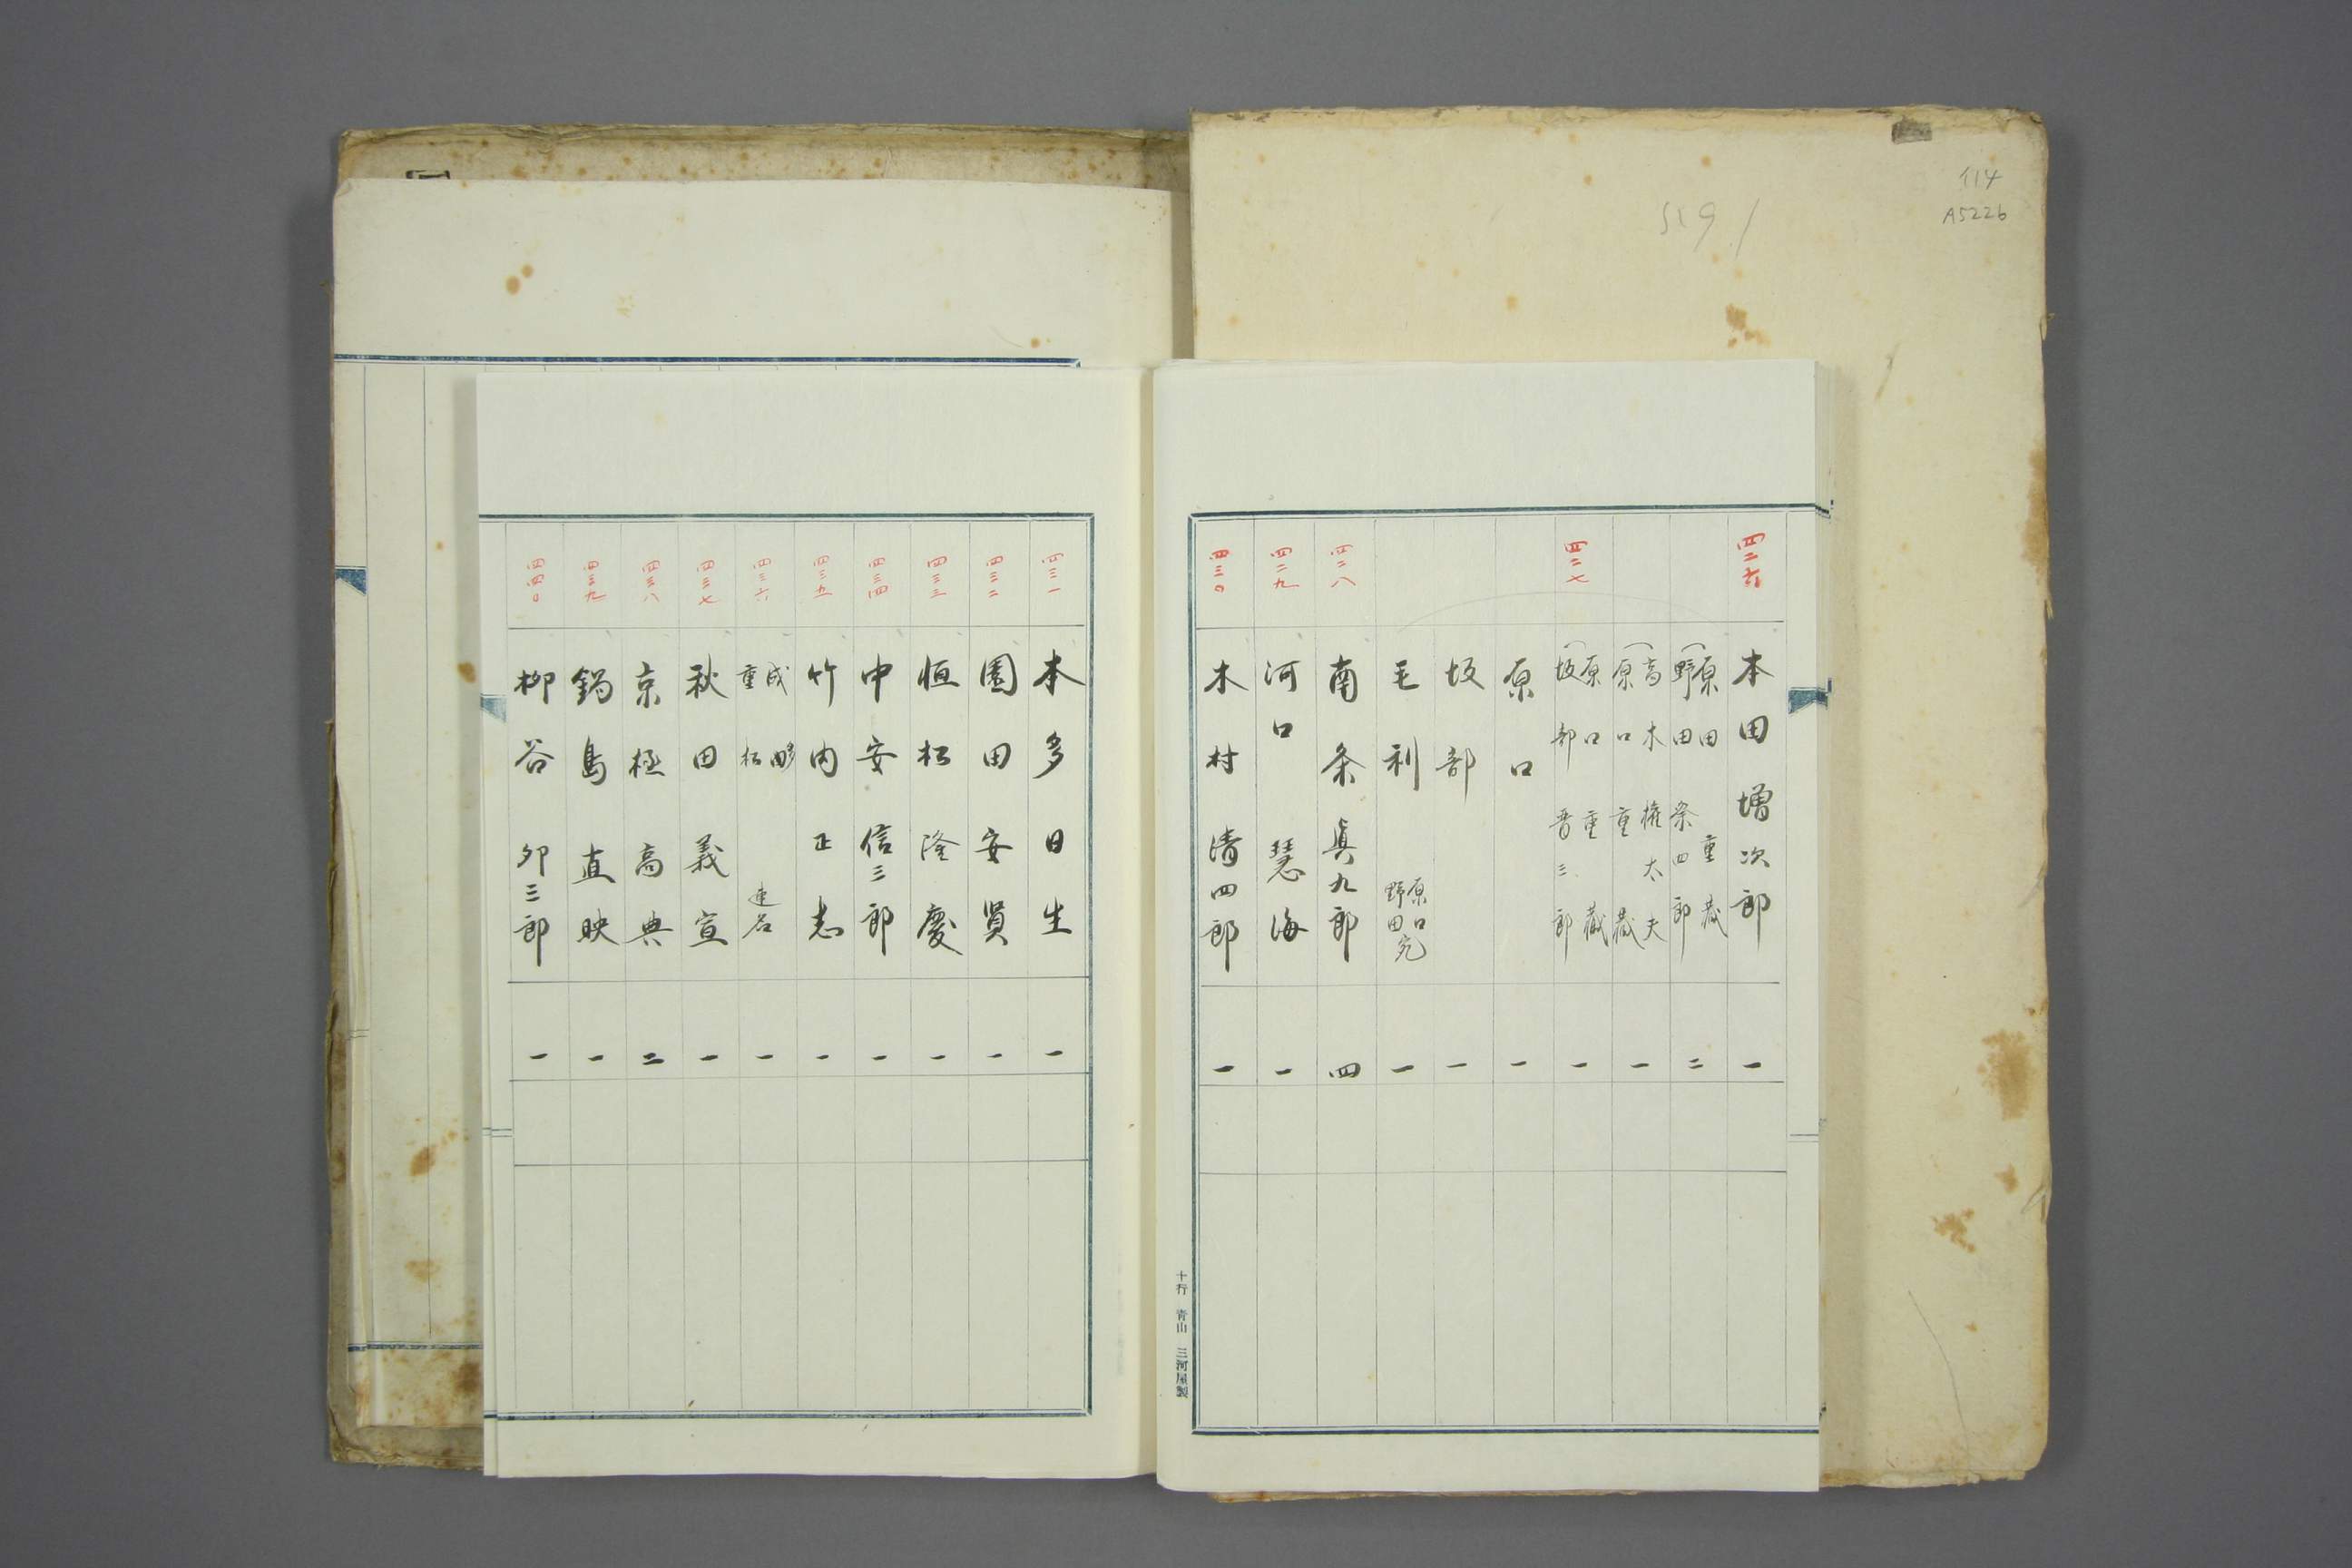 114
A5226
四二六 本田増次郎 一
原田重蔵
野田粂四郎 二
高木権太夫
原口重蔵 一
四二七 原口重蔵
坂部晋三郎 一
原口 一
坂部 一
毛利 原口野田宛 一
四二八 南条眞九郎 四
四二九 河口慧海 一
四三〇 木村清四郎 一
十行 青山 三河屋製
四三一 本多日生 一
四三二 園田安賢 一
四三三 恒松隆慶 一
四三四 中安信三郎 一
四三五 竹内正志 一
四三六 成田
重松 連名 一
四三七 秋田義宣 一
四三八 京極高典 二
四三九 鍋島直映 一
四四〇 柳谷卯三郎 一